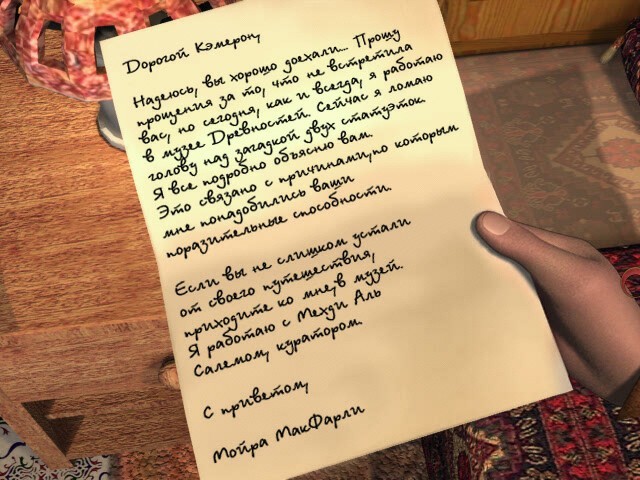 Дорогой Кэмерон,
Надеюсь, вы хорошо доехали... Прошу
прощения за то, что не встретила
вас, но сегодня, как и всегда, я работаю
в музее Древностей. Сейчас я ломаю
голову над загадкой двух статуэток.
Я все подробно объясню вам.
Это связано с причинами,по которым
мне понадобились ваши
поразительные способности.
Если вы не слишком устали
от своего путешествия,
приходите ко мне,в музей.
Я работаю с Мехди Аль
Салемом, куратором.
С приветом,
Мойра МакФарли